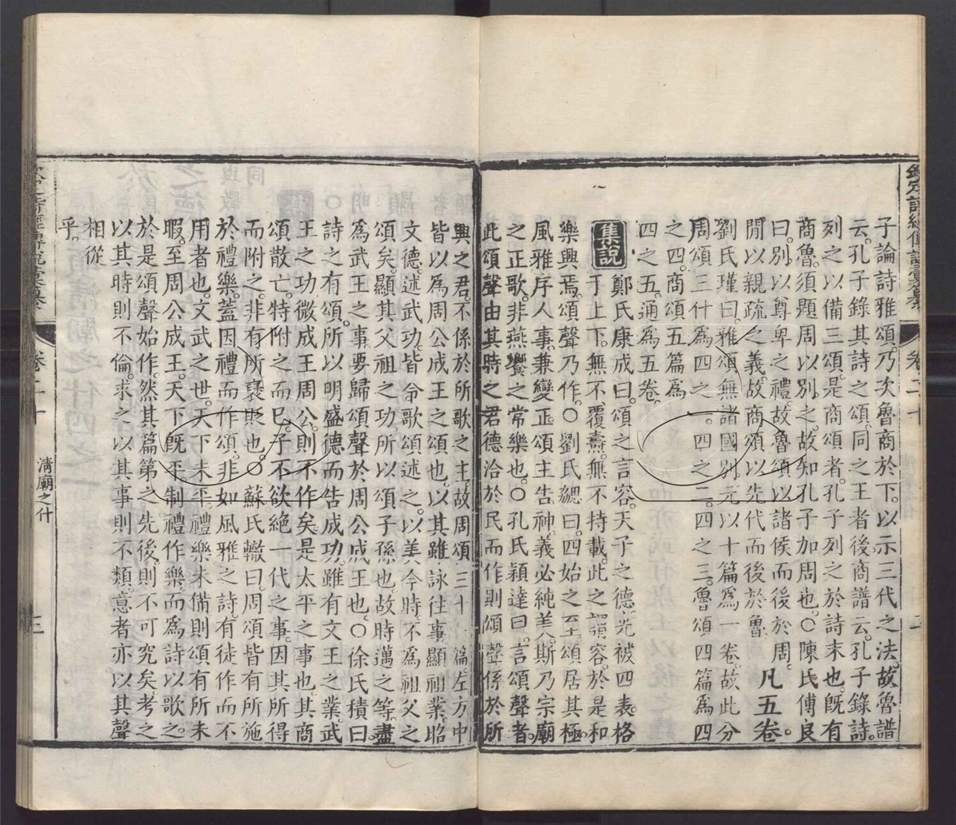 子論詩雅頌乃次魯商於下。以示三代之法。故魯譜
云。孔子錄其詩之頌。同之王者後。商譜云。孔子錄詩。
列之以備三頌。是商頌者。孔子列之於詩末也。既有
商魯。須題周以別之。故知孔子加周也。○陳氏傅良
曰。別以尊卑之禮。故魯頌以諸侯而後於周。
閒以親疏之義。故商頌以先代而後於魯。凡五卷
劉氏瑾曰。雅頌無諸國別。元以十篇為一卷。故此分
周頌三什為。四之一。四之二。四之三。魯頌四篇為四
之四。商頌五篇為
四之五。通為五卷。
集說 鄭氏康成曰。頌之言容。天子之德。光被四表。格
于上下。無不覆燾。無不持載。此之謂容。於是和
樂興焉。頌聲乃作。○劉氏勰曰。四始之至。頌居其極。
風雅序人事。兼變正。頌主告神。義必純美。斯乃宗廟
之正歌。非燕饗之常樂也。○孔氏穎達曰。言頌聲者。
此頌聲由其時之君德洽於民而作。則頌聲係於所
興之君。不係於所歌之主。故周頌三十一篇。左方中
皆以為周公成王之頌也。以其雖詠往事。顯祖業。昭
文德。述武功。皆令歌頌述之。以美今時。不為祖父之
頌矣。顯其父祖之功。所以頌子孫也。故時邁之等。盡
為武王之事。要歸頌聲於周公成王也。○徐氏積曰
詩之有頌。所以明盛德而告成功。雖有文王之業。武
王之功。微成王周公。則不作矣。是太平之事也。其商
頌散亡。特附之而已。子不欲絕一代之事。因其所得
而附之。非有所襃貶也。○蘇氏轍曰。周頌皆有所施
於禮樂。蓋因禮而作頌。非如風雅之詩。有徒作而不
用者也。文武之世。天下未平。禮樂未備。則頌有所未
暇。至周公成王。天下既平。制禮作樂。而為詩以歌之。
於是頌聲始作。然其篇第之先後。則不可究矣。考之
以其時則不倫。求之以其事則不類。意者亦以其聲
相從
乎。
卷二十
清廟之什
三